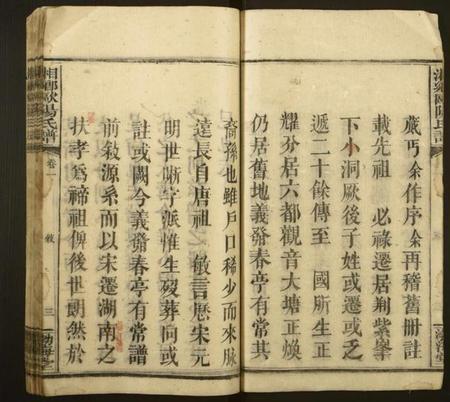 嵗丐余作序余再稽舊册註
載先祖 必祿遷居荆紫峯
下小洞厥後子姓或遷或乏
遞二十餘傳至 國所生正
耀分居六都觀音大塘正煥
仍居舊地義發春亭有常其
裔孫也雖戶口稀少而來脉
遠長自唐祖 敏言歷宋元
明世晰字派惟生歿葬向或
註或闕今義發春亭有常譜
前敍源系而以宋遷湖南之
扶孝爲諦祖俾後世朗然於
湘鄉歐陽氏譜
卷一
敍
三
渤海堂